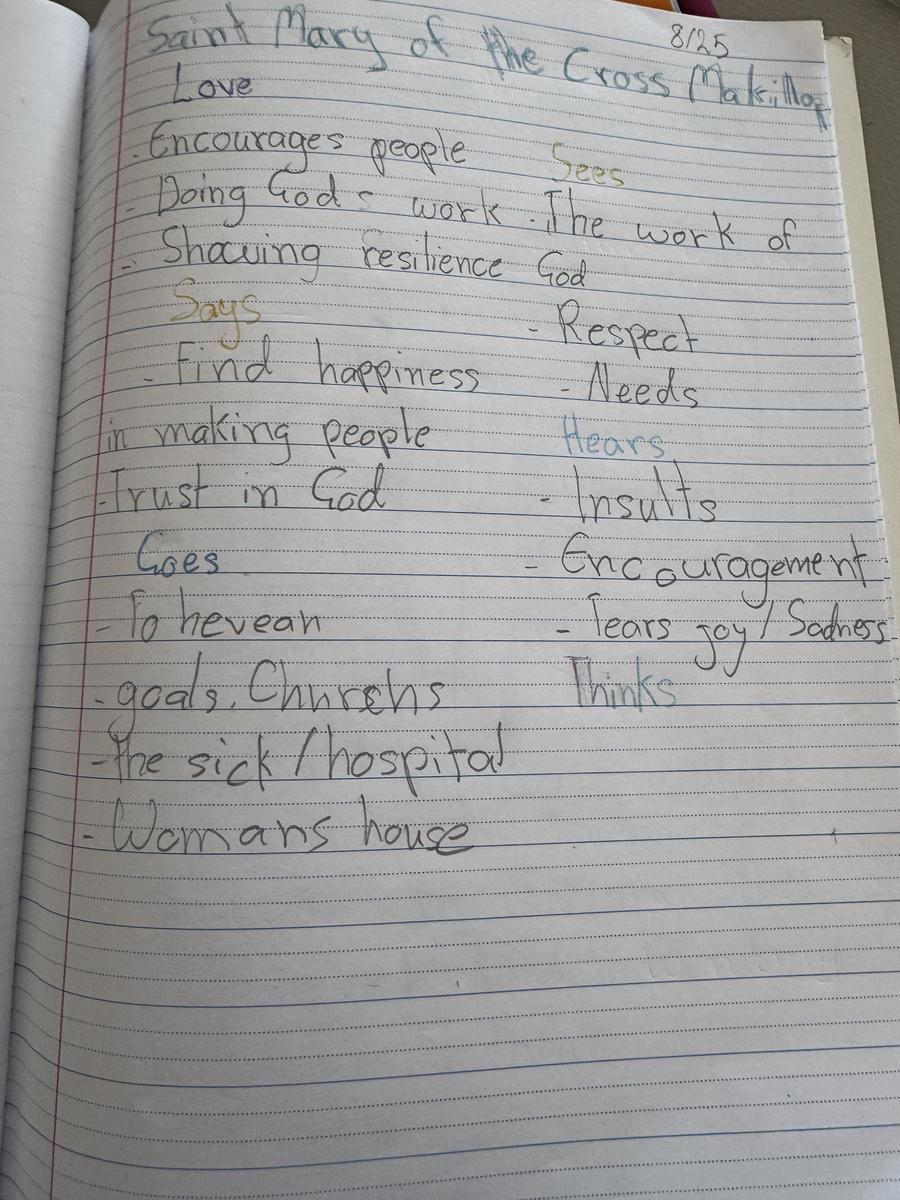 8/25
Saint Mary of the Cross Makillop
Love
. Encourages people
- Doing God s work
- Showing resilience
Says
- Find happiness
in making people
- Trust in God
Goes
- To hevean
- goals. Churchs
- The sick / hospital
- Womans house
Sees
- The work of
God
- Respect
- Needs
Hears
- Insults
- Encouragement
- Tears joy / Sadness
Thinks